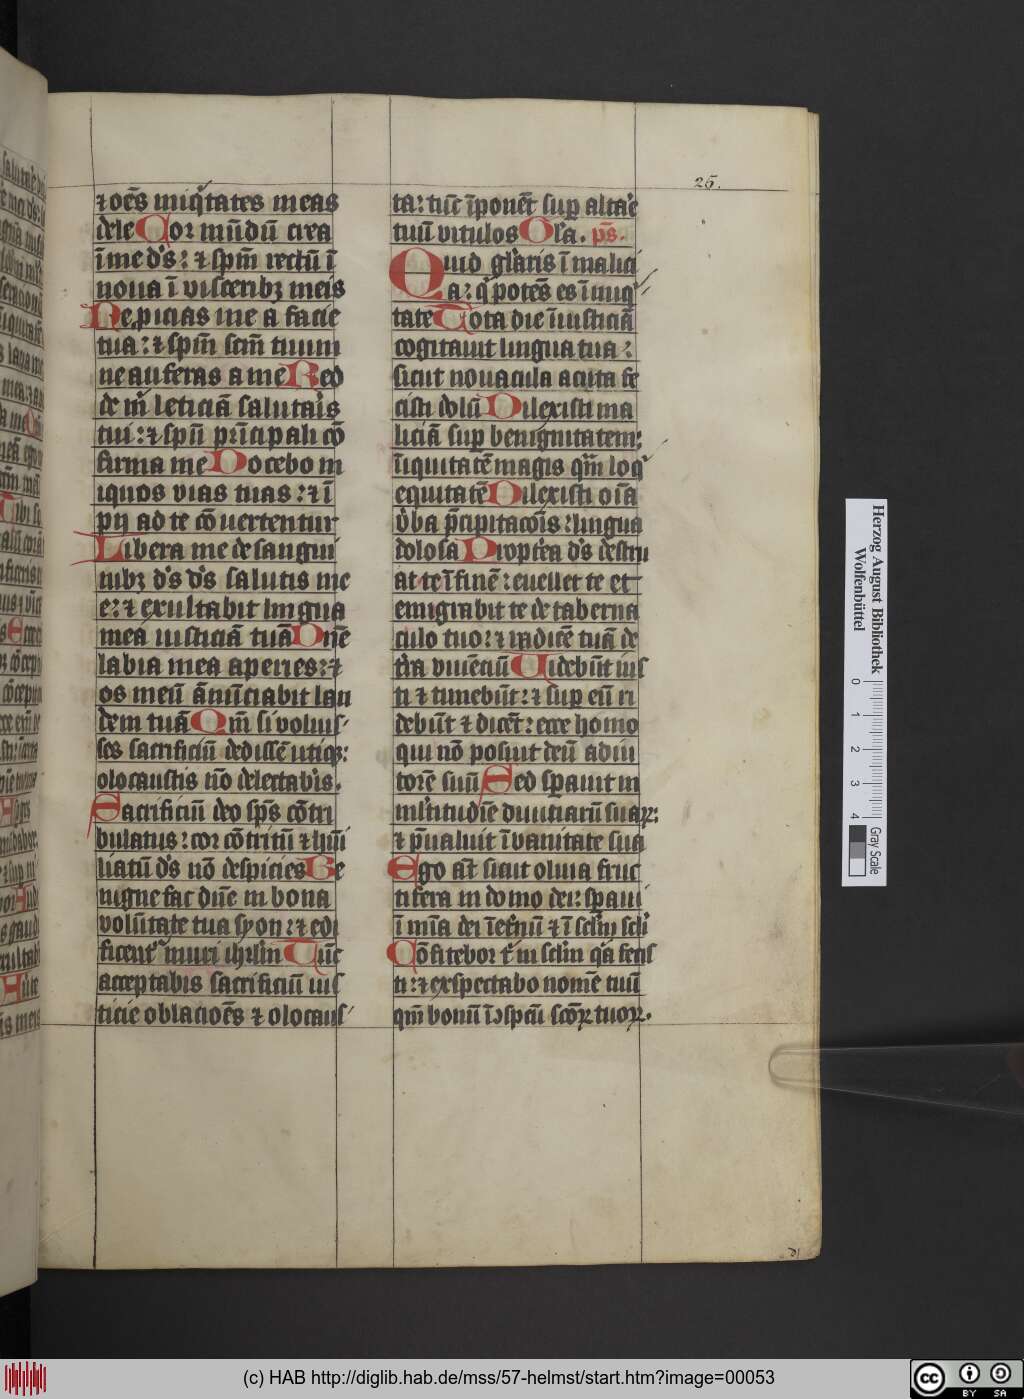 25.
⁊ oēs iniq̉tates meas
dele Cor mūdū crea
ī me d̄s: ⁊ sp̄m rectū ī
noua ī visceribꝫ meis
Ne ꝓicias me a facie
tua: ⁊ sp̄m scm̄ tuum
ne auferas a me Red
de m̉ leticiā salutar̉s
tui: ⁊ spū prīcipali cō
firma me Docebo in
iquos vias tuas: ⁊ ī
pij ad te cōuertentur
Libera me de sangui
nibꝫ d̄s d̄s salutis me
e: ⁊ exultabit lingua
mea iusticiā tuā Dn̄e
labia mea aperies: ⁊
os meū ānūciabit lau
dem tuā Qm̄ si voluis
ses sacrificiū dedissē utiqꝫ:
olocaustis nō delectab̉is.
Sacrificiū deo sp̄s cōtri
bulatus: cor cōtritū ⁊ hūi
liatū d̄s nō despicies Be
nigne fac dn̄e in bona
volūtate tua syon: ⁊ edi
ficent᷑ muri ihrl̄m Tūc
acceptabis sacrificiū ius
ticie oblacioēs ⁊ olocaus
ta: tūc īponēt suꝑ altare
tuū vitulos Gl̄a. ps̄.
Quid gl̉aris ī malici
a: q̉ potēs es ī iniq̉
tate Tota die īiusticiā
cogitauit lingua tua:
sicut nouacula acuta fe
cisti dolū Dilexisti ma
liciā suꝑ benignitatem:
īiquitatē magis qm̄ loq̉
equitatē Dilexisti oīa
v̉ba p̄cipitacōis: lingua
dolosa Propt̉ea d̄s destru
at te ī finē: euellet te et
emigrabit te de taberna
culo tuo: ⁊ radicē tuā de
t̉ra viuēciū Videbūt ius
ti ⁊ timebūt: ⁊ suꝑ eū ri
debūt ⁊ dicēt: ecce homo
qui nō posuit deū adiu
torē suū Sed sꝑauit in
ml̉titudīe diuitiarū suaꝝ:
⁊ p̄ualuit ī vanitate sua
Ego aūt sicut oliua fruc
tifera in domo dei: sꝑaui
ī mīa dei īet̉nū ⁊ ī sclm̄ scl̉i
Cōfitebor t̉ in sclm̄ q̉a fecis
ti: ⁊ exspectabo nomē tuū
qm̄ bonū ī ↄspcū scōꝝ tuoꝝ.
Herzog August Bibliothek
Wolfenbüttel
0 1 2 3 4
Gray Scale
(c) HAB http://diglib.hab.de/mss/57-helmst/start.htm?image=00053
cc BY SA